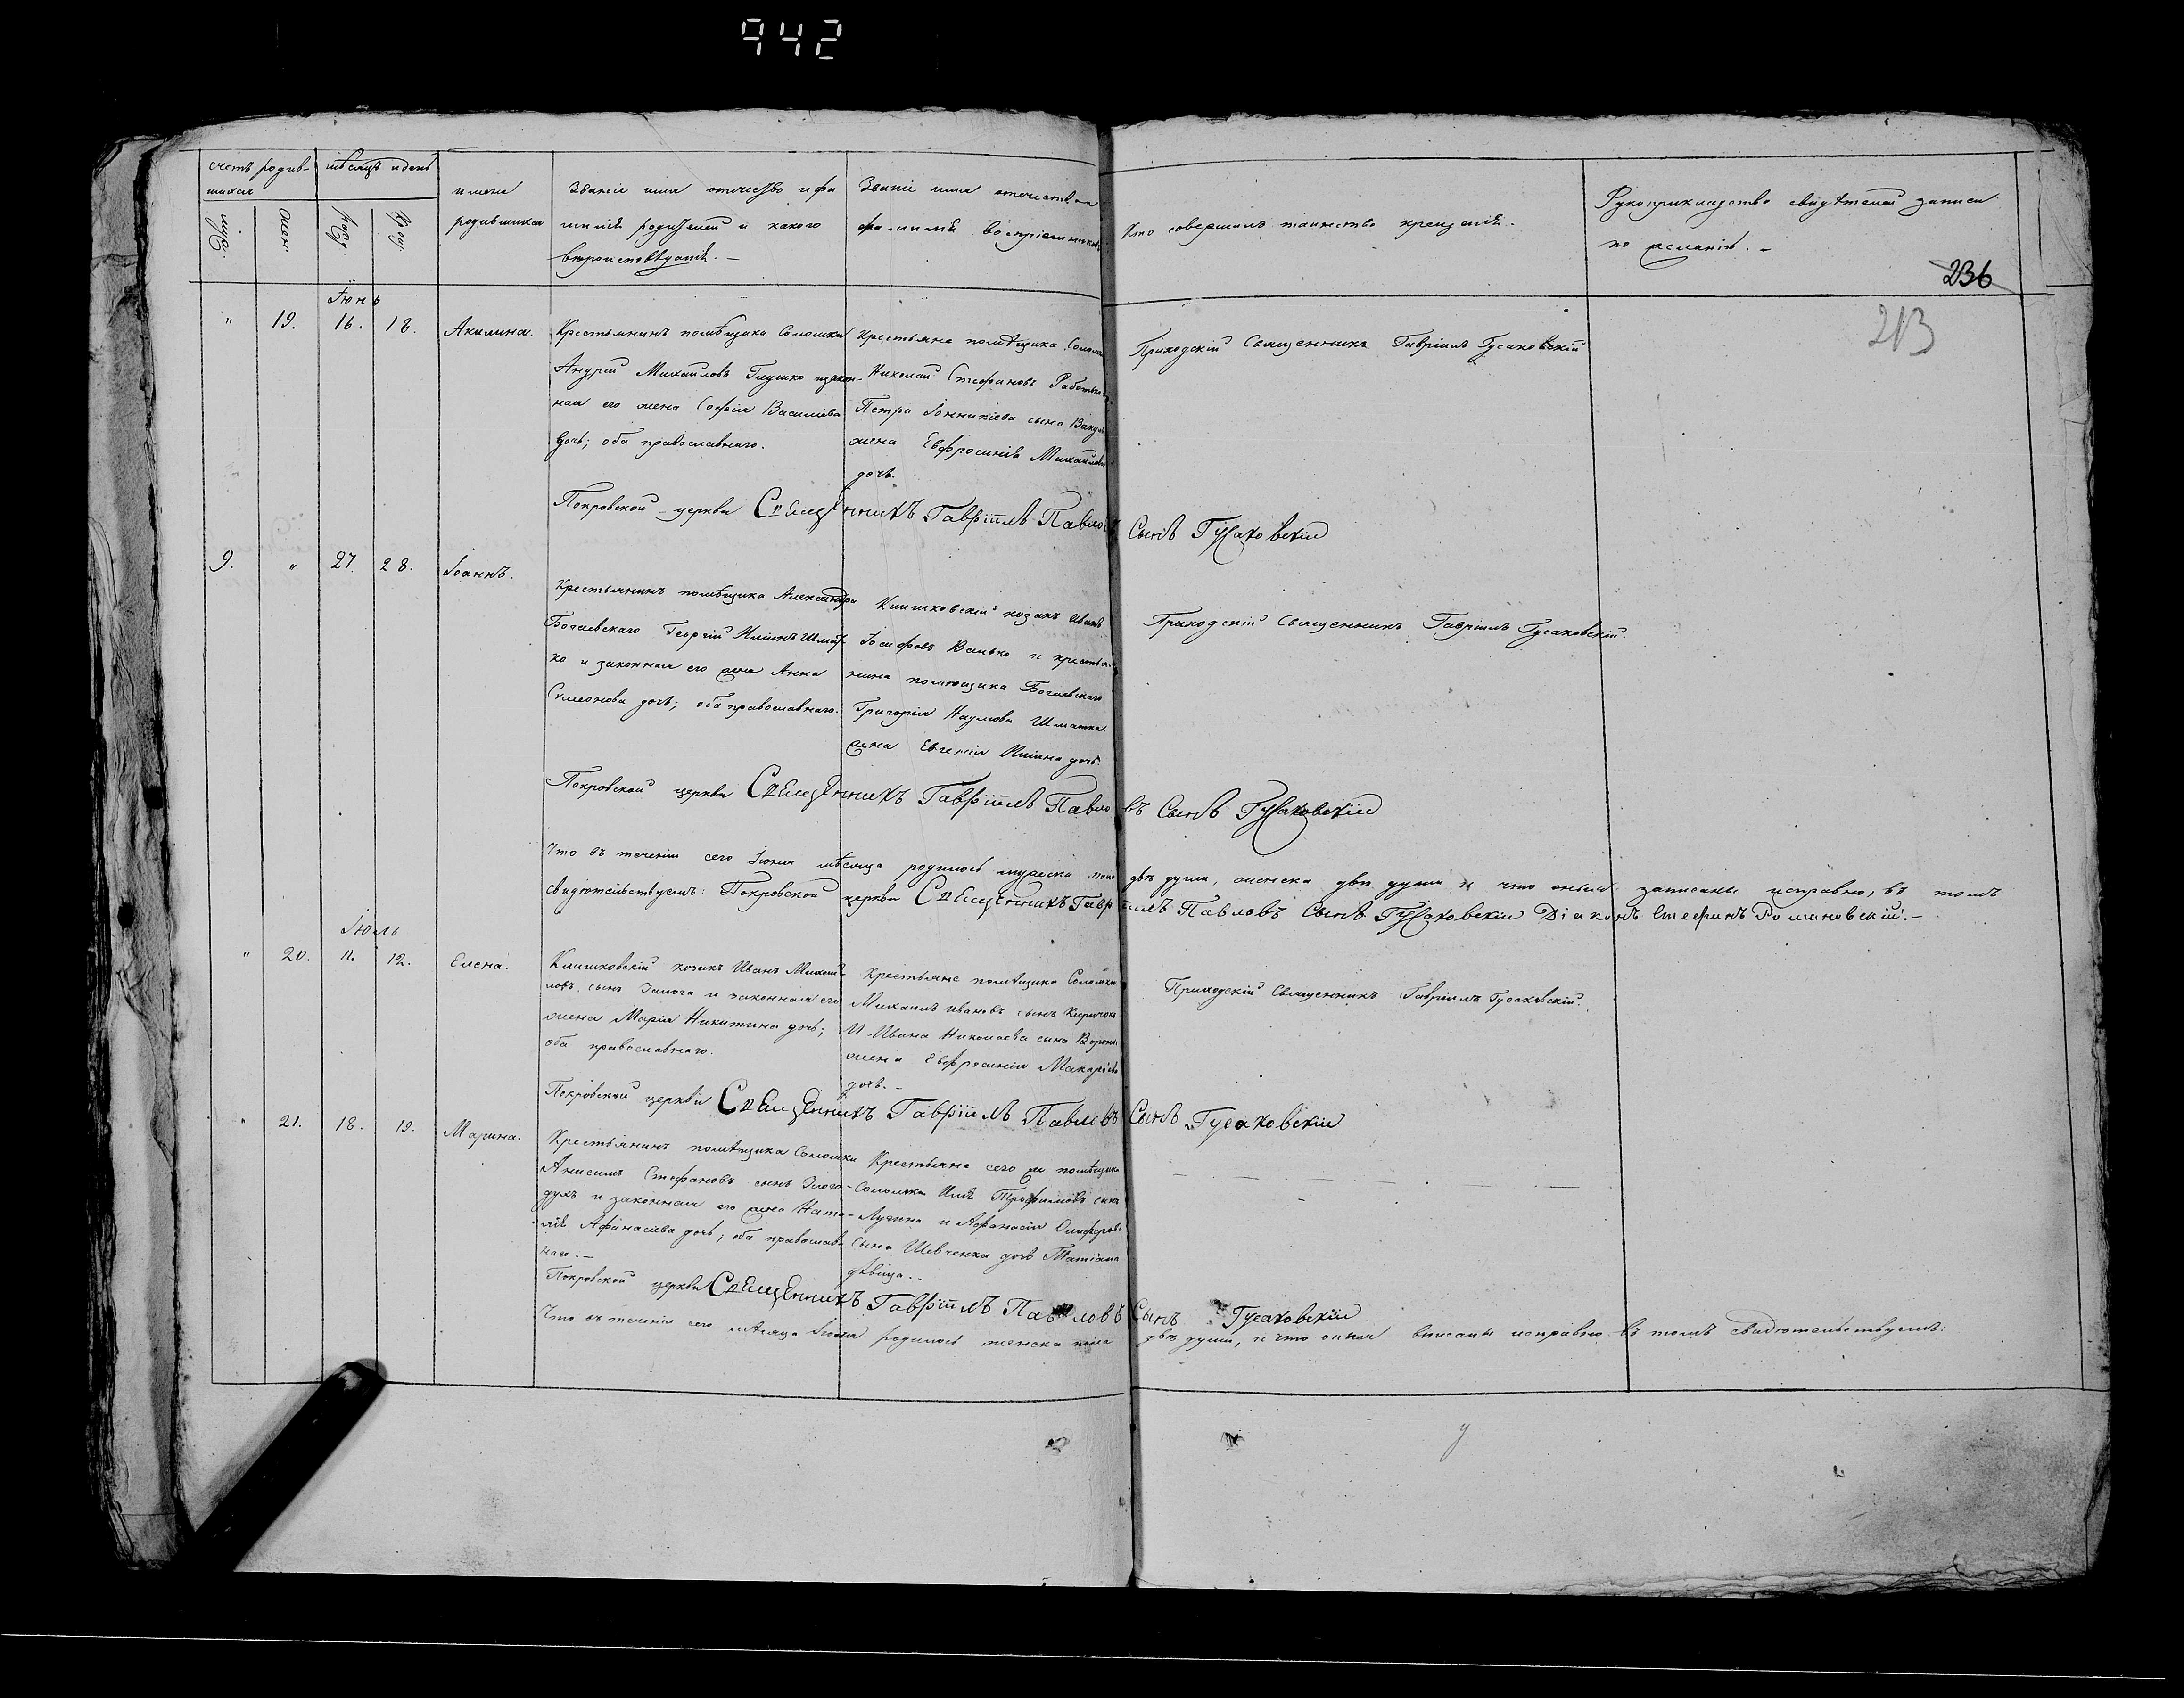 942
счетъ родив- мѣсяцъ и день
шихся
муж. жен. рожд. крещ.
имена
родившихся
Званіе имя отчество и фа
милія родителей и какого
вѣроисповѣданія. –
Званіе имя отчество и
фамилія воспріемниковъ.
Кто совершалъ таинство крещенія.
Рукоприкладство свидѣтелей записи
по желанію. –
236
213
Іюнь
" 19. 16. 18. Акилина.
Крестьянинъ помѣщика Соломки
Андрей Михайловъ Глушко и закон-
ная его жена Софія Василіева
дочь; оба православнаго.
Крестьяне помѣщика Соломки
Николай Стефановъ
Петра Іоаникіева сына
жена Евфросинія Михаилова
дочь.
Приходскій Священникъ Гавріилъ Гусаковскій
Покровской церкви Священникъ Гавріилъ Павловъ Сынъ Гусаковскій
9. " 27. 28. Іоаннъ.
Крестьянинъ помѣщика Александра
Богаевскаго Георгій Ильинъ Шмат-
ко и законная его жена Анна
Симеонова дочь; оба православнаго.
Клишковскій козакъ Иванъ
Іосифовъ Валько и крестья-
нина помѣщика Богаевскаго
Григорія Наумова Шматка
жена Евгенія Ильина дочь.
Приходскій Священникъ Гавріилъ Гусаковскій.
Покровской церкви Священникъ Гавріилъ Павловъ Сынъ Гусаковскій
Что въ теченіи сего Іюня мѣсяца родилось мужеска пола двѣ души, женска двѣ души и что оныя записаны исправно, въ томъ
свидѣтельствуемъ: Покровской церкви Священникъ Гавріилъ Павловъ Сынъ Гусаковскій Діаконъ Стефанъ Романовскій. –
Іюль
" 20. 11. 12. Елена.
Клишковскій козакъ Иванъ Михаи-
ловъ сынъ и законная его
жена Марія Никитина дочь;
оба православнаго.
Крестьяне помѣщика Соломки
Михаилъ Ивановъ сынъ
И Ивана Николаева сына
жена Евфросинія Макаріева
дочь. –
Приходскій Священникъ Гавріилъ Гусаковскій.
Покровской церкви Священникъ Гавріилъ Павловъ Сынъ Гусаковскій
" 21. 18. 19. Марина.
Крестьянинъ помѣщика Соломки
Анисимъ Стефановъ сынъ
и законная его жена Ната-
лія Афанасіева дочь; оба православ
наго. –
Крестьяне сего же помѣщика
Соломки Илія Трофимовъ сынъ
и Афанасія
сына Шевченка дочь Татіана
дѣвица. –
Покровской церкви Священникъ Гавріилъ Павловъ Сынъ Гусаковскій
Что въ теченіи сего мѣсяца Іюля родилось женска пола двѣ души, и что оныя вписаны исправно въ томъ свидѣтельствуемъ: